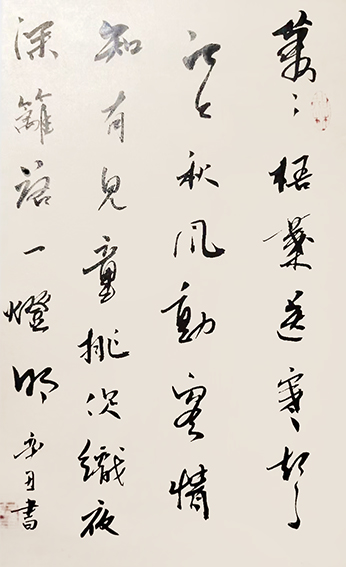 蕭〻梧葉送寒聲
江上秋風動客情
知有兒童挑促織夜
深籬落一燈明 辛丑書